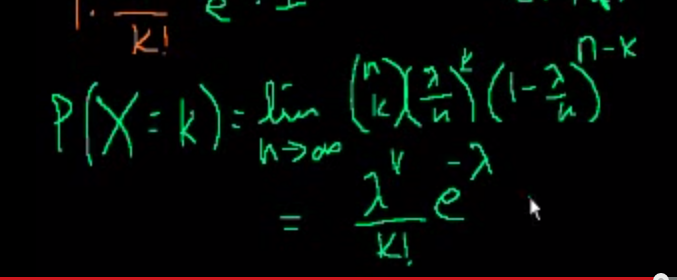 P(X=k)=lim (n k)(λ/n)^k (1-λ/n)^(n-k)
n→∞
= λ^k/k! e^-λ